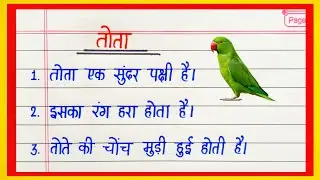 Page
तोता
1. तोता एक सुंदर पक्षी है।
2. इसका रंग हरा होता है।
3. तोते की चोंच मुड़ी हुई होती है।